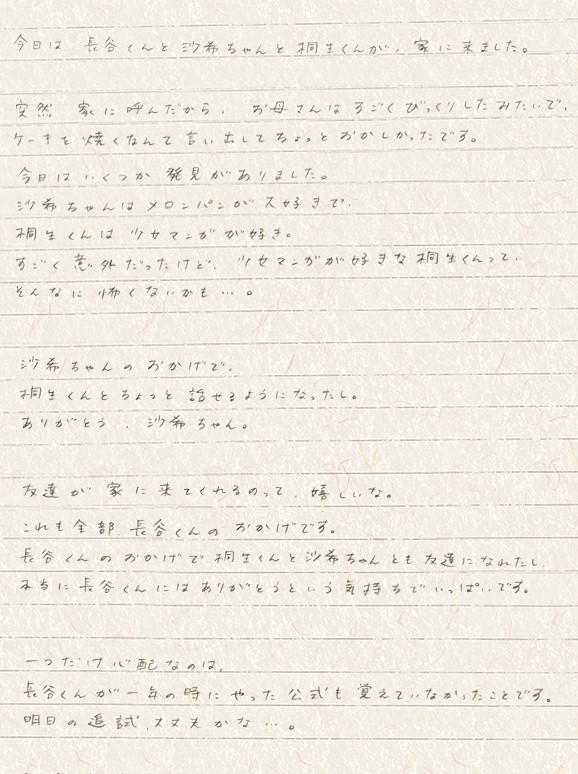 今日は 長谷くんと沙希ちゃんと桐生くんが、家に来ました。
突然 家に呼んだから、お母さんはすごくびっくりしたみたいで、
ケーキを焼くなんて言い出してちょっとおかしかったです。
今日はいくつか発見がありました。
沙希ちゃんはメロンパンが大好きで、
桐生くんは少女マンガが好き。
すごく意外だったけど、少女マンガが好きな桐生くんって、
そんなに怖くないかも…。
沙希ちゃんのおかげで、
桐生くんとちょっと話せるようになったし。
ありがとう、沙希ちゃん。
友達が家に来てくれるのって、嬉しいな。
これも全部、長谷くんのおかげです。
長谷くんのおかげで桐生くんと沙希ちゃんとも友達になれたし、
本当に長谷くんにはありがとうという気持ちでいっぱいです。
一つだけ心配なのは、
長谷くんが一年の時にやった公式も覚えていなかったことです。
明日の追試、大丈夫かな…。